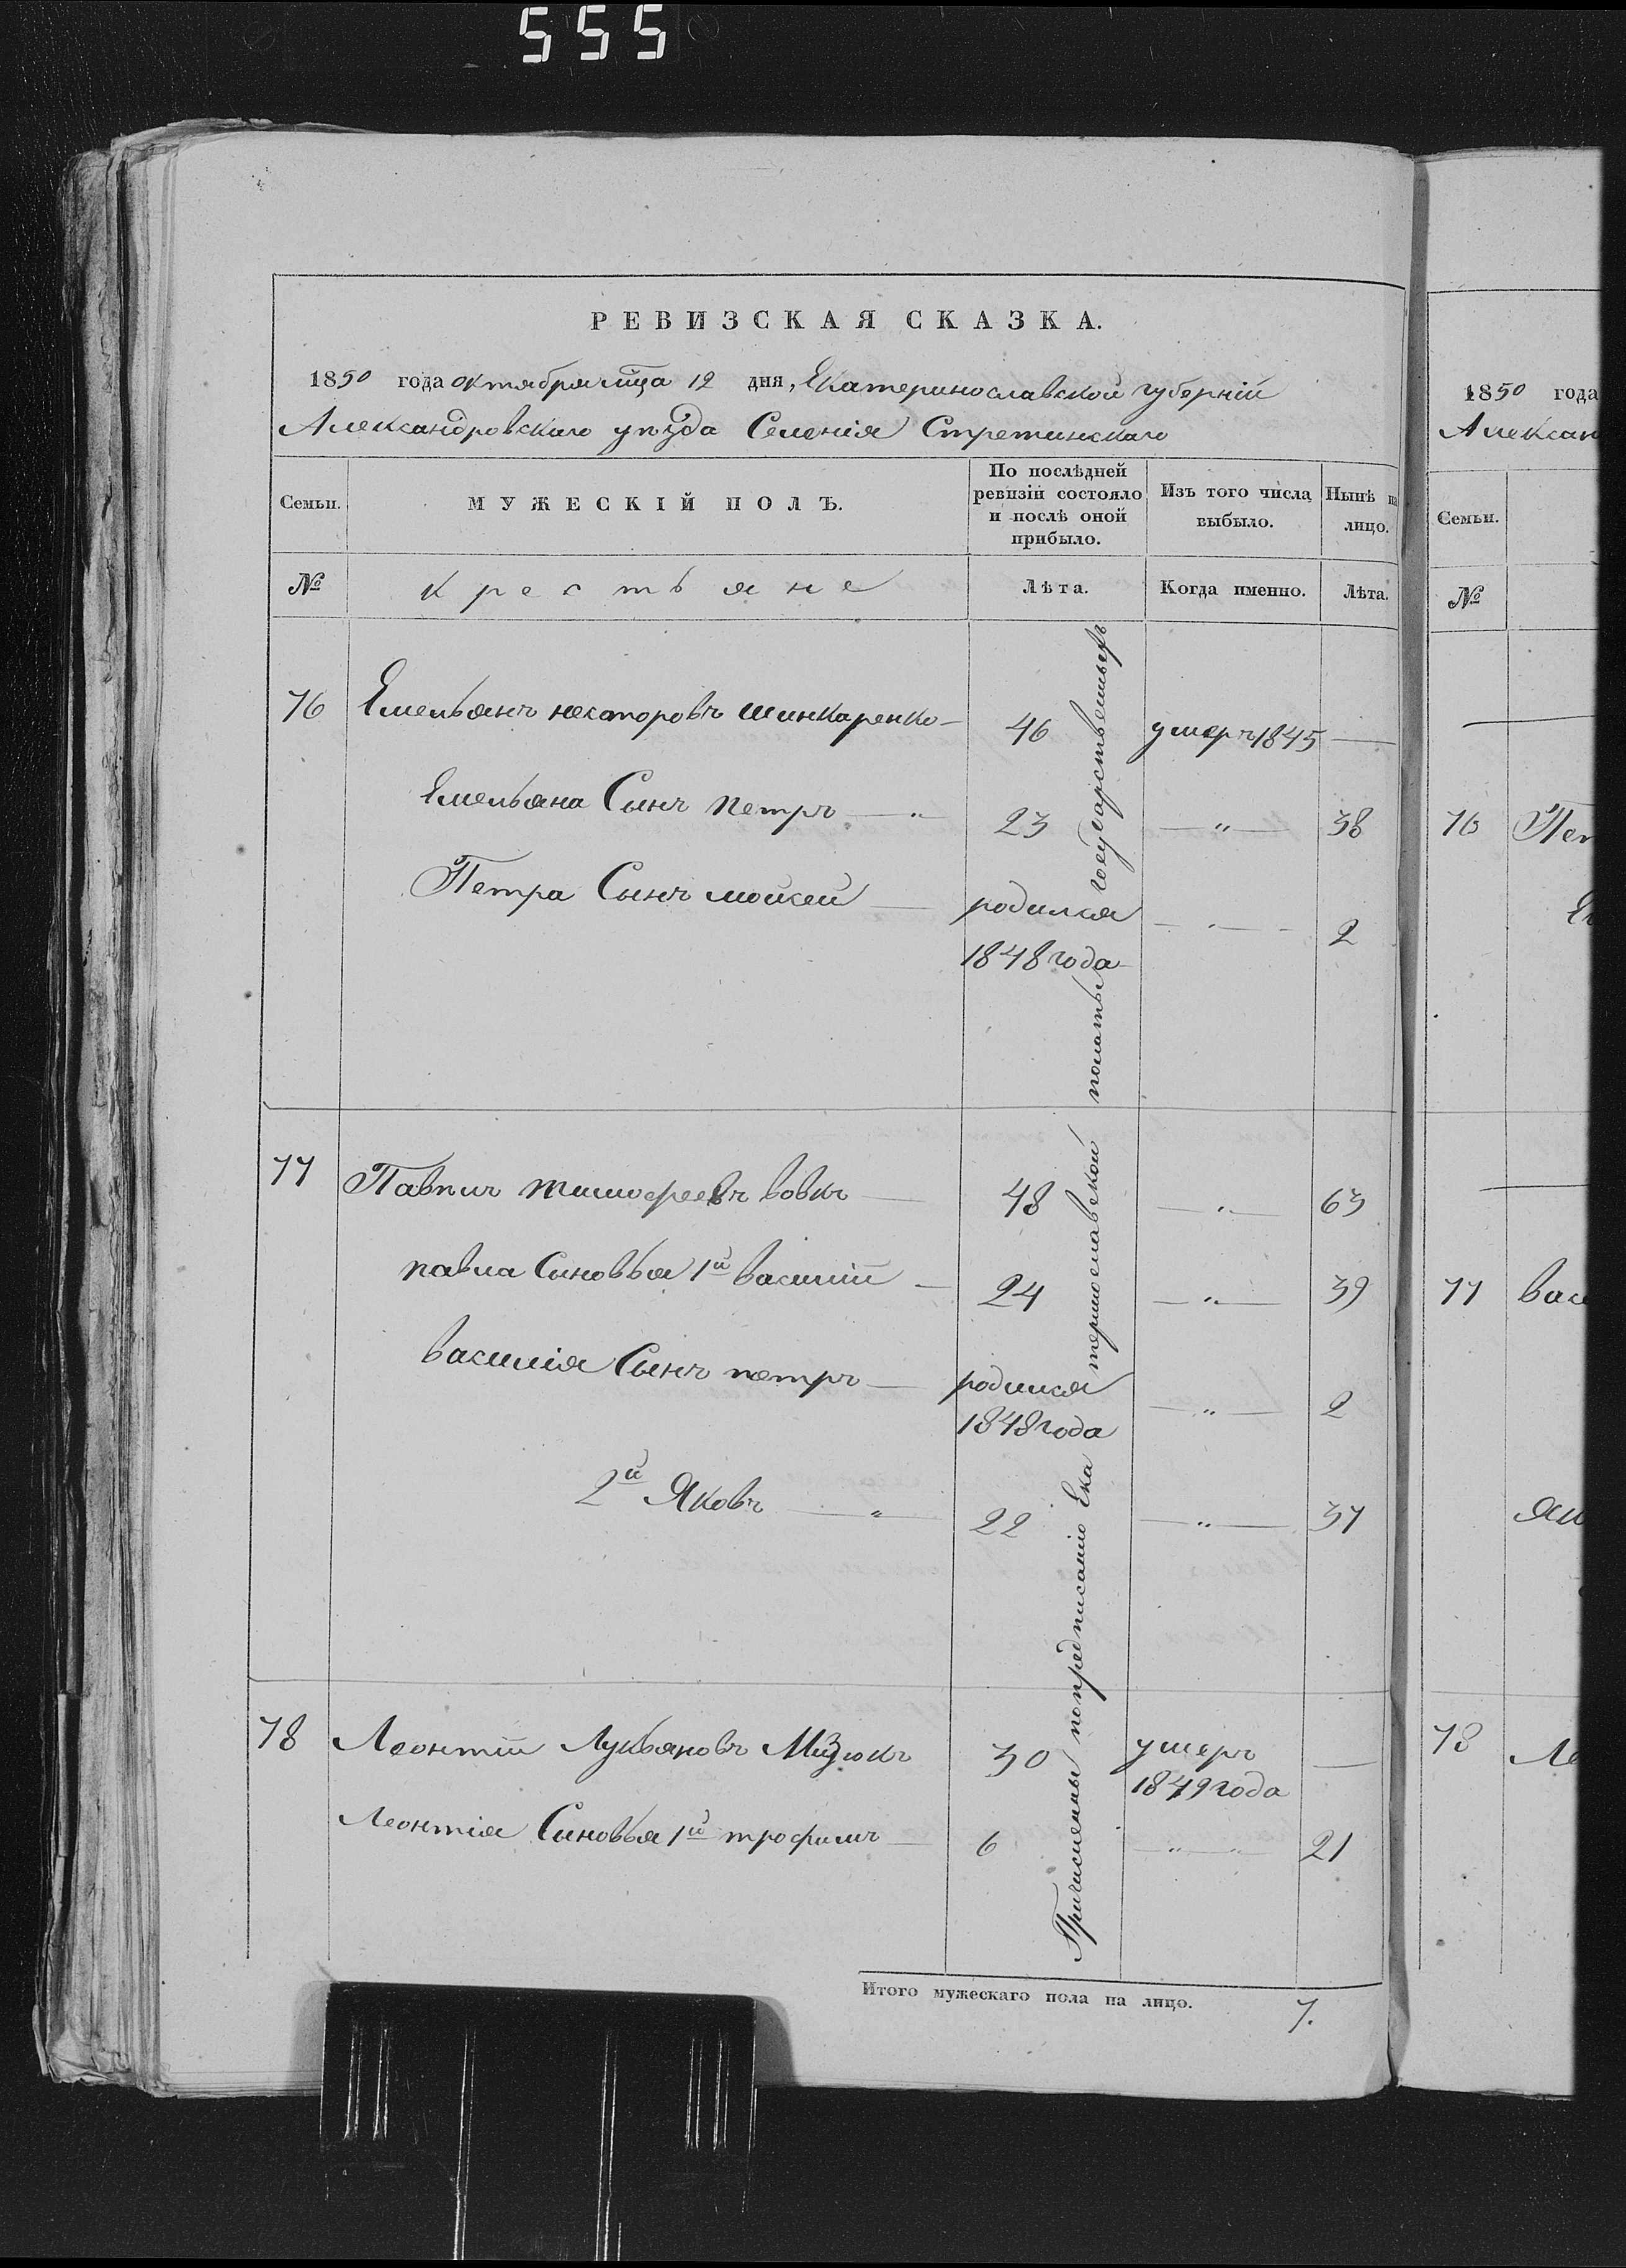 555
РЕВИЗСКАЯ СКАЗКА.
1850 года октября мца 12 дня, Екатеринославской губерніи
Александровскаго уѣзда Селенія Стретинскаго
Семьи.
МУЖЕСКІЙ ПОЛЪ.
По послѣдней ревизіи состояло и послѣ оной прибыло.
Изъ того числа выбыло.
Нынѣ на лицо.
№
крестьяне
Лѣта.
Когда именно.
Лѣта.
76 Емельянъ несторовъ шинкаренко — 46 умеръ 1845 —
Емельяна Сынъ петръ — " — 23 — " — 38
Петра Сынъ мойсей — родился 1848 года — " — 2
77 Павелъ тимофеевъ вовкъ — 48 — " — 63
павла Сыновья 1й василій — 24 — " — 39
василія Сынъ петръ — родился 1848 года — " — 2
2й Яковъ — " — 22 — " — 37
78 Леонтій Лукьяновъ Мизюкъ 30 умеръ 1849 года —
Леонтія Сыновья 1й трофимъ — 6 — " — " 21
Причисленны по предписанію Екатеринославской палаты государственныхъ
Итого мужескаго пола на лицо. 7.
1850 года
Александ
Семьи.
№
76 Пет
Ем
77 васи
яко
78 Ле